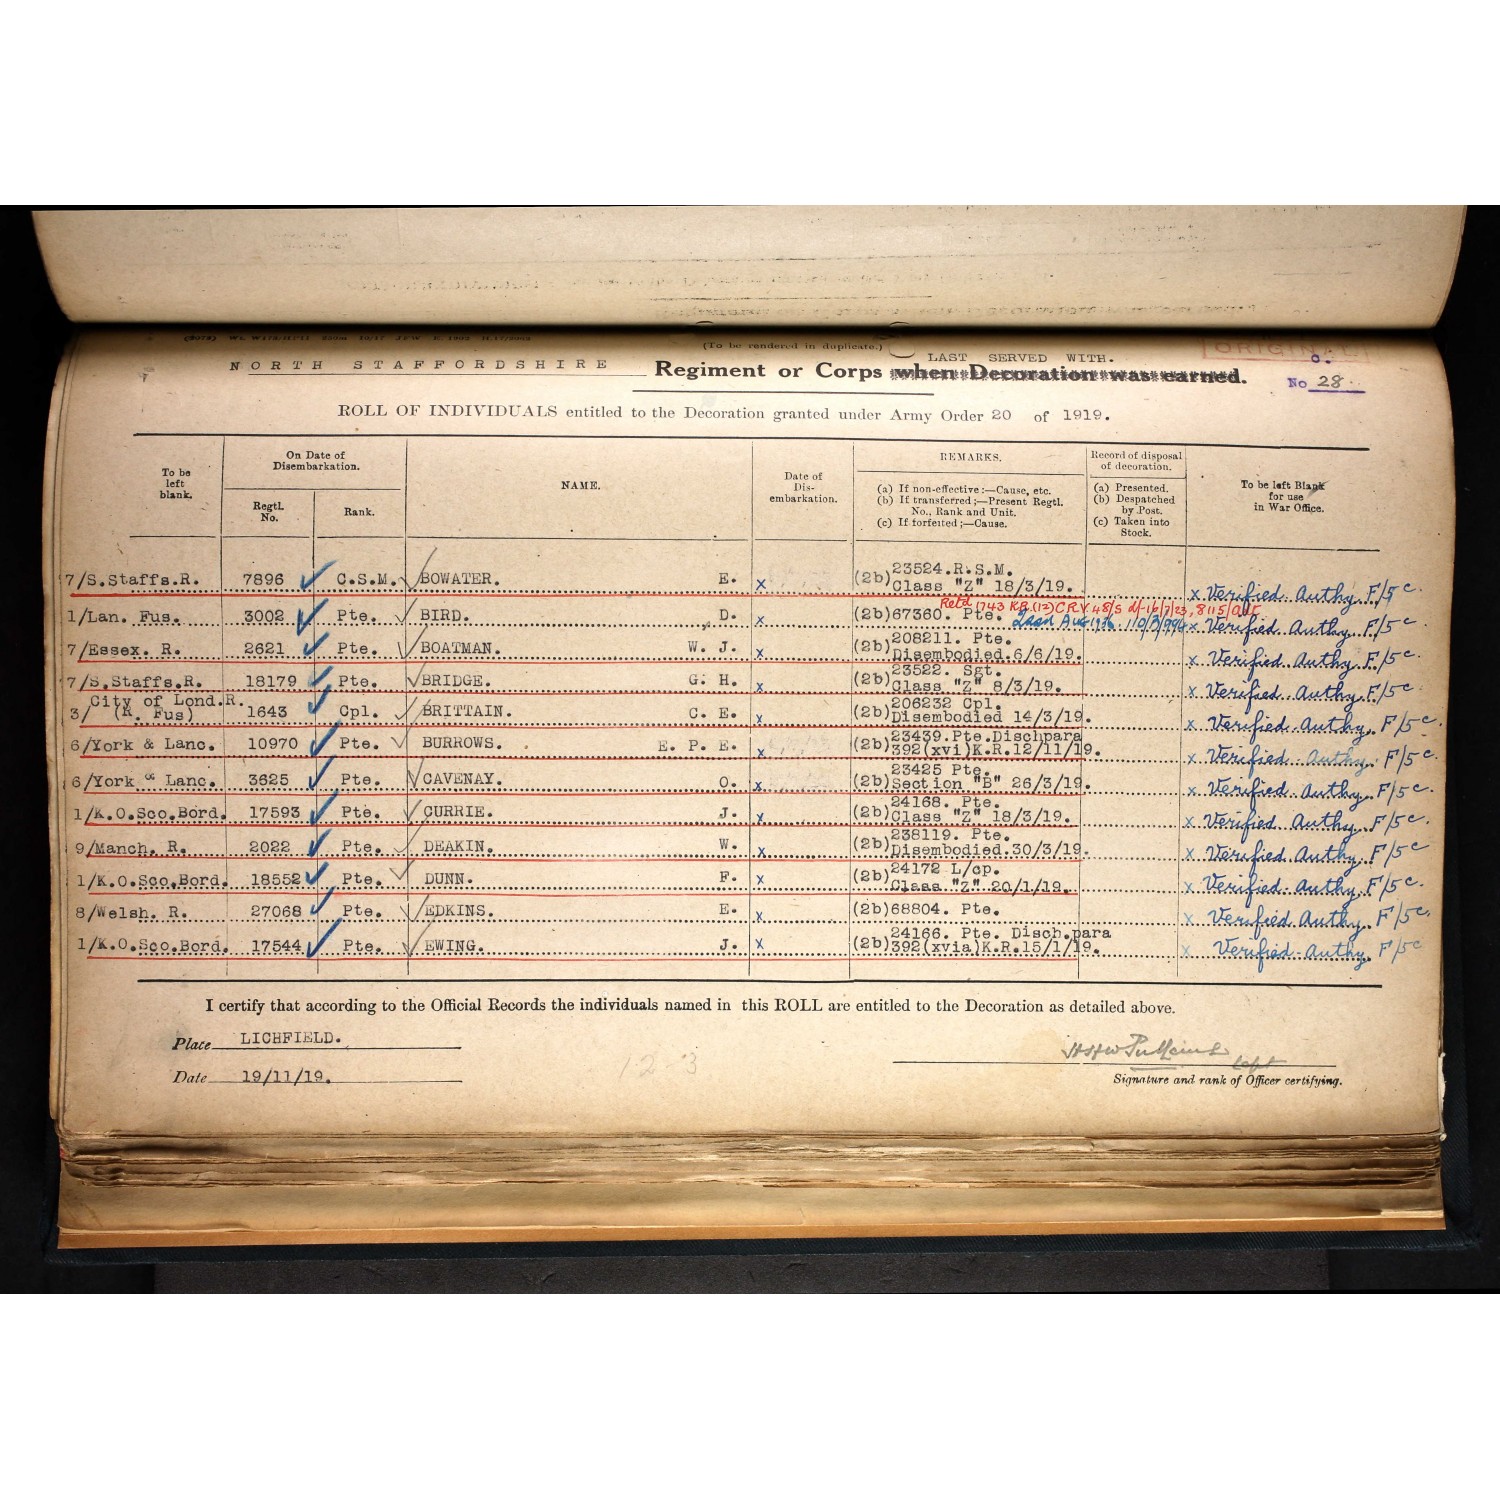 (To be rendered in duplicate.)
NORTH STAFFORDSHIRE Regiment or Corps when Decoration was earned. LAST SERVED WITH.
ORIGINAL
No 28
ROLL OF INDIVIDUALS entitled to the Decoration granted under Army Order 20 of 1919.
To be left blank.
On Date of Disembarkation.
Regtl. No.
Rank.
NAME.
Date of Dis-embarkation.
REMARKS.
(a) If non-effective:—Cause, etc.
(b) If transferred;—Present Regtl. No., Rank and Unit.
(c) If forfeited;—Cause.
Record of disposal of decoration.
(a) Presented.
(b) Despatched by Post.
(c) Taken into Stock.
To be left Blank for use in War Office.
7/S.Staffs.R. 7896 C.S.M. BOWATER. E. x (2b) 23524.R.S.M. Class "Z" 18/3/19. x Verified Authy F/5c.
Retd 1743 KR (12) CRV 48/S d/-16/7/23, 8115/Adt
1/Lan. Fus. 3002 Pte. BIRD. D. x (2b) 67360. Pte. x Verified Authy F/5c.
7/Essex. R. 2621 Pte. BOATMAN. W. J. x (2b) 208211. Pte. Disembodied.6/6/19. x Verified Authy F/5c.
7/S.Staffs.R. 18179 Pte. BRIDGE. G. H. x (2b) 23522. Sgt. Class "Z" 8/3/19. x Verified Authy F/5c
3/City of Lond.R. (R. Fus) 1643 Cpl. BRITTAIN. C. E. x (2b) 206232 Cpl. Disembodied 14/3/19. x Verified Authy F/5c.
6/York & Lanc. 10970 Pte. BURROWS. E. P. E. x (2b) 23439.Pte.Dischpara 392(xvi)K.R.12/11/19. x Verified Authy F/5c.
6/York & Lanc. 3625 Pte. CAVENAY. O. x (2b) 23425 Pte. Section "B" 26/3/19. x Verified Authy F/5c.
1/K.O.Sco.Bord. 17593 Pte. CURRIE. J. x (2b) 24168. Pte. Class "Z" 18/3/19. x Verified Authy F/5c.
9/Manch. R. 2022 Pte. DEAKIN. W. x (2b) 238119. Pte. Disembodied.30/3/19. x Verified Authy F/5c
1/K.O.Sco.Bord. 18552 Pte. DUNN. F. x (2b) 24172 L/cp. Class "Z" 20/1/19. x Verified Authy F/5c.
8/Welsh. R. 27068 Pte. EDKINS. E. x (2b) 68804. Pte. x Verified Authy F/5c.
1/K.O.Sco.Bord. 17544 Pte. EWING. J. x (2b) 24166. Pte. Disch.para 392(xvia)K.R.15/1/19. x Verified Authy F/5c
I certify that according to the Official Records the individuals named in this ROLL are entitled to the Decoration as detailed above.
Place LICHFIELD.
Date 19/11/19.
12-3
Signature and rank of Officer certifying.